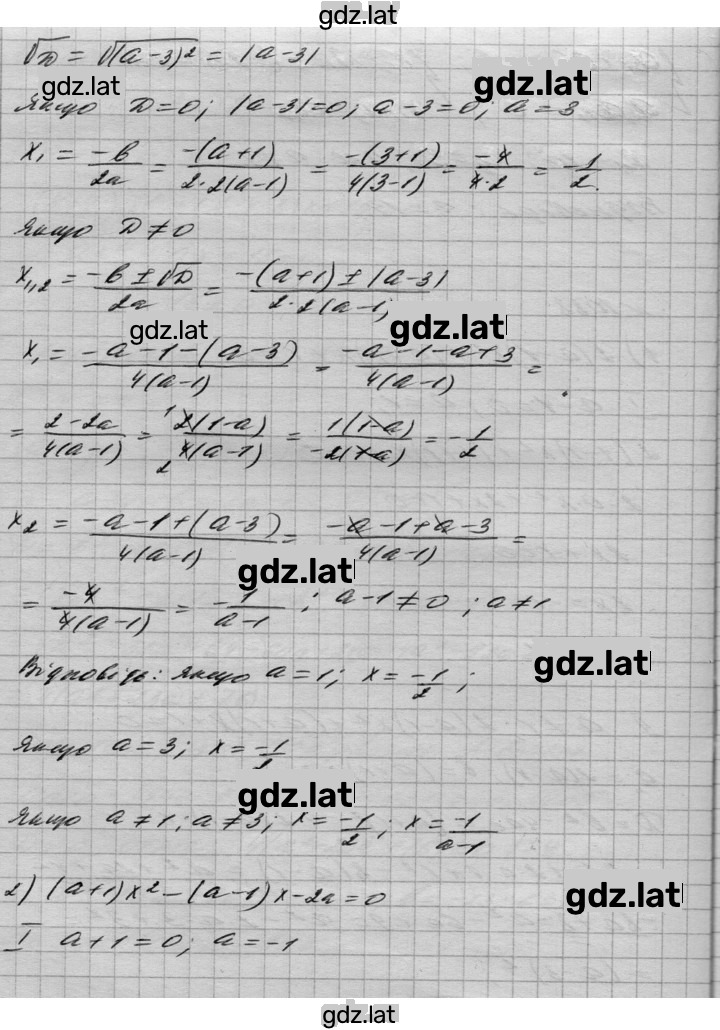 gdz.lat
√D = √(a-3)² = |a-3|
gdz.lat
gdz.lat
Якщо D=0; |a-3|=0; a-3=0; a=3
x₁ = -b/2a = -(a+1)/2·2(a-1) = -(3+1)/4(3-1) = -4/4·2 = -1/2.
Якщо D≠0
x₁,₂ = -b±√D/2a = -(a+1)±|a-3|/2·2(a-1)
gdz.lat
gdz.lat
x₁ = -a-1-(a-3)/4(a-1) = -a-1-a+3/4(a-1) =
= 2-2a/4(a-1) = 2(1-a)/4(a-1) = 1(1-a)/-2(1-a) = -1/2
x₂ = -a-1+(a-3)/4(a-1) = -a-1+a-3/4(a-1) =
gdz.lat
= -4/4(a-1) = -1/a-1 ; a-1≠0 ; a≠1
gdz.lat
Відповідь: якщо a=1; x = -1/2 ;
якщо a=3; x = -1/2
gdz.lat
Якщо a≠1; a≠3; x = -1/2 ; x = -1/a-1
gdz.lat
2) (a+1)x² - (a-1)x - 2a = 0
I a+1=0; a=-1
gdz.lat